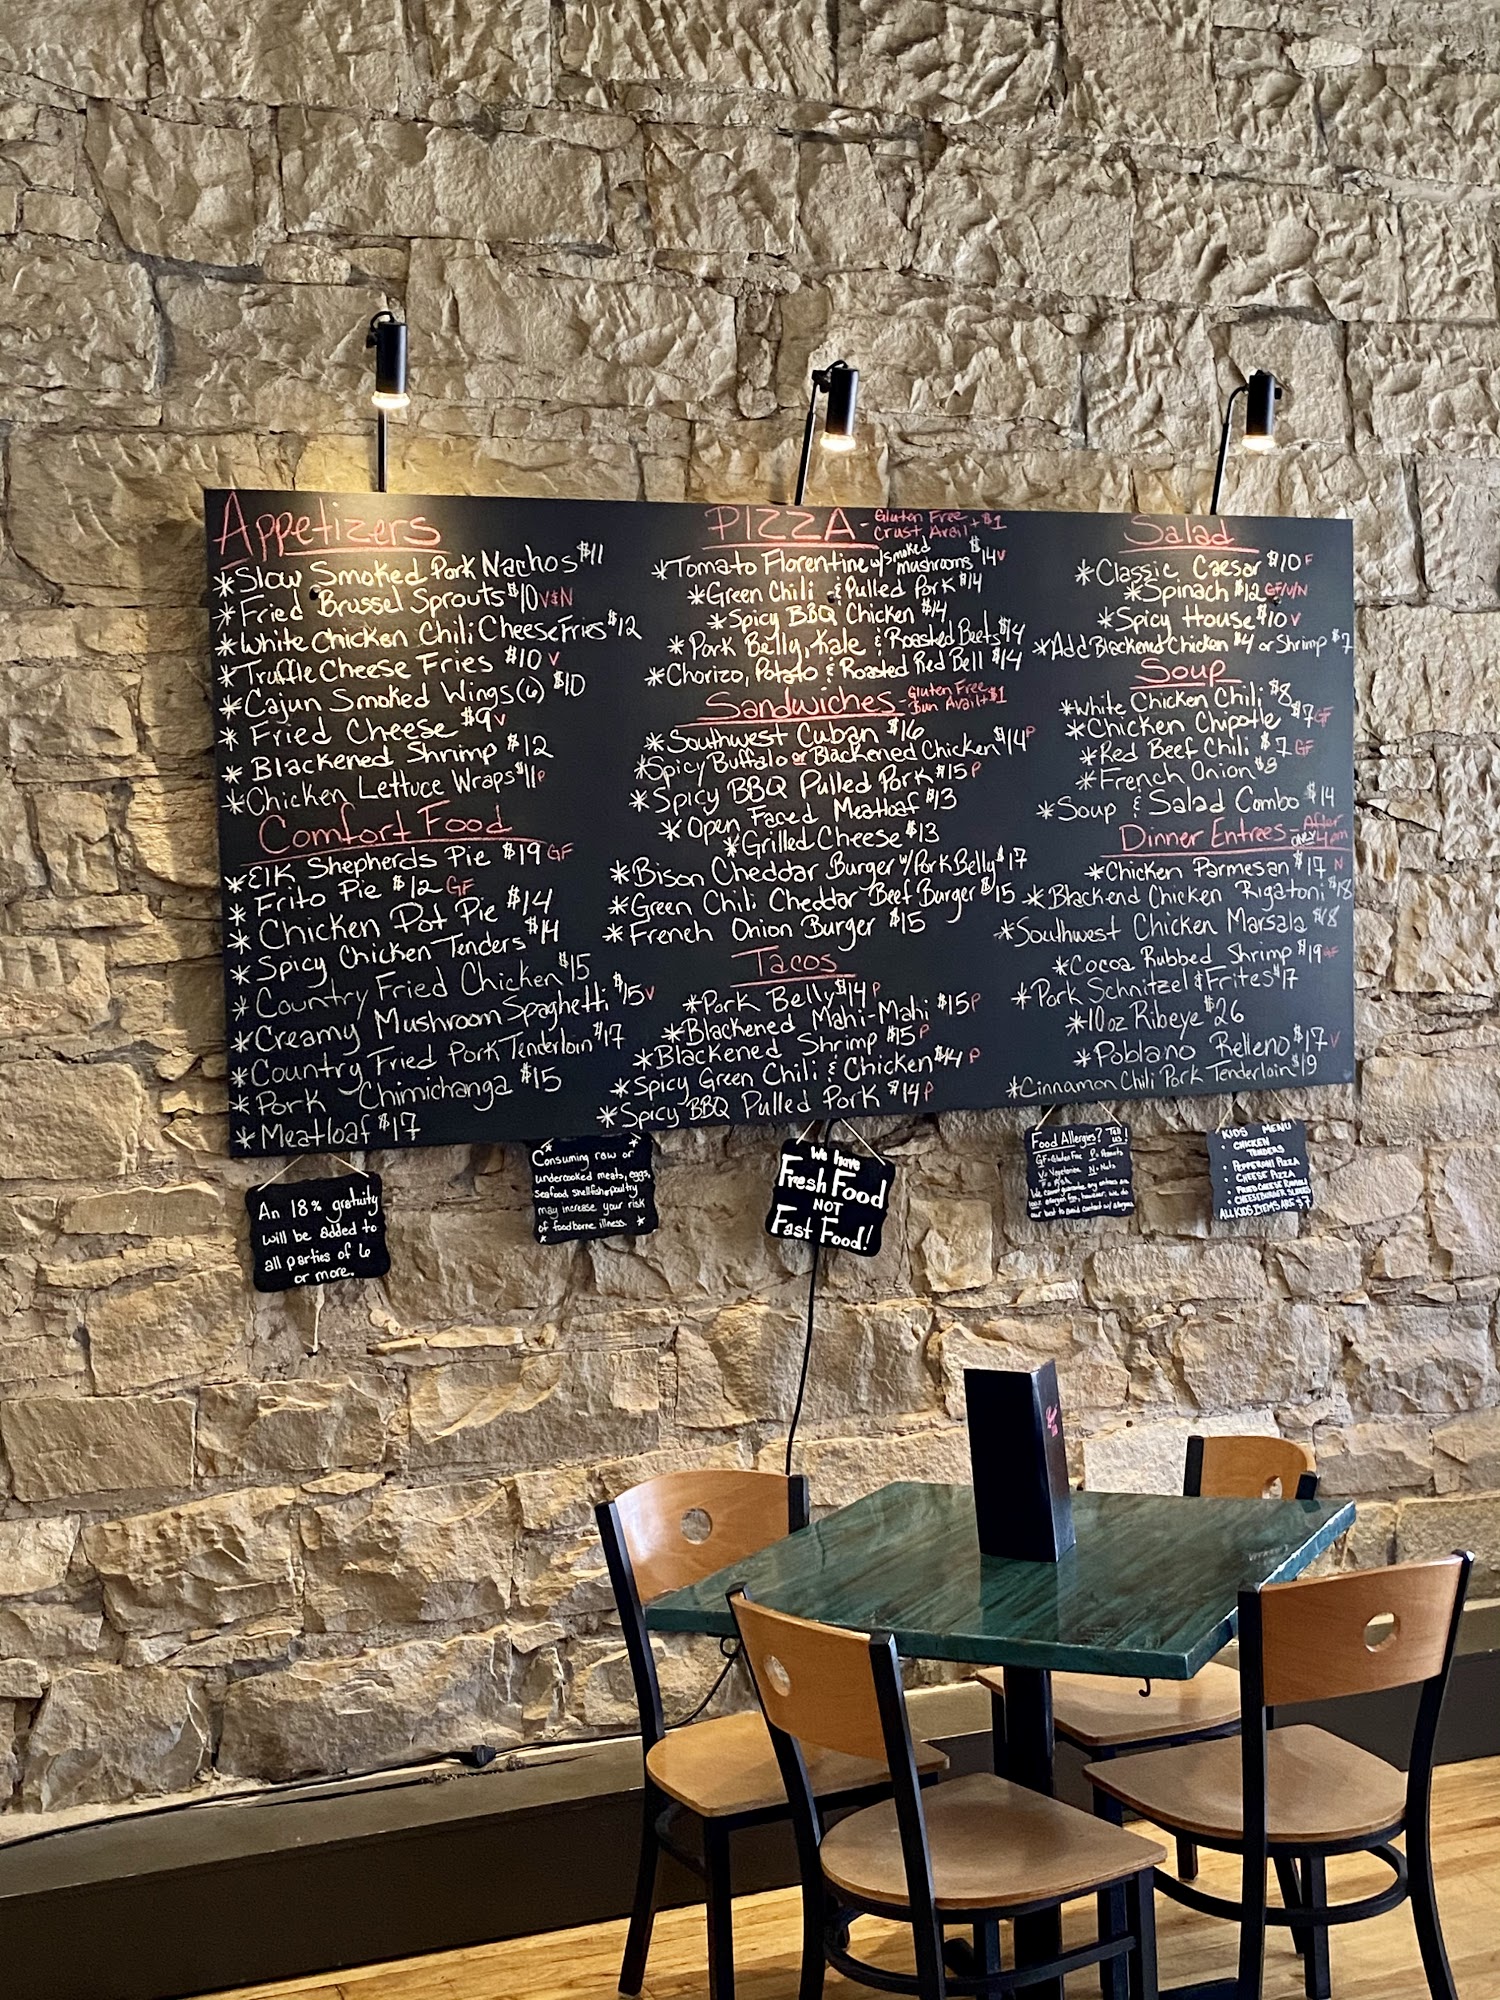 Appetizers
*Slow Smoked Pork Nachos $11
*Fried Brussel Sprouts $10 V&N
*White Chicken Chili Cheese Fries $12
*Truffle Cheese Fries $10 V
*Cajun Smoked Wings (6) $10
*Fried Cheese $9 V
*Blackened Shrimp $12
*Chicken Lettuce Wraps $11 P
Comfort Food
*Elk Shepherds Pie $19 GF
*Frito Pie $12 GF
*Chicken Pot Pie $14
*Spicy Chicken Tenders $14
*Country Fried Chicken $15
*Creamy Mushroom Spaghetti $15 V
*Country Fried Pork Tenderloin $17
*Pork Chimichanga $15
*Meatloaf $17
PIZZA - Gluten Free
Crust Avail + $1
*Tomato Florentine w/ smoked mushrooms $14 V
*Green Chili & Pulled Pork $14
*Spicy BBQ Chicken $14
*Pork Belly, Kale & Roasted Beets $14
*Chorizo, Potato & Roasted Red Bell $14
Sandwiches - Gluten Free
Bun Avail + $1
*Southwest Cuban $16
*Spicy Buffalo or Blackened Chicken $14 P
*Spicy BBQ Pulled Pork $15 P
*Open Faced Meatloaf $13
*Grilled Cheese $13
*Bison Cheddar Burger w/ Pork Belly $17
*Green Chili Cheddar Beef Burger $15
*French Onion Burger $15
Tacos
*Pork Belly $14 P
*Blackened Mahi-Mahi $15 P
*Blackened Shrimp $15 P
*Spicy Green Chili & Chicken $14 P
*Spicy BBQ Pulled Pork $14 P
Salad
*Classic Caesar $10 F
*Spinach $12 GF/V/N
*Spicy House $10 V
*Add Blackened Chicken $4 or Shrimp $7
Soup
*White Chicken Chili $8
*Chicken Chipotle $7 GF
*Red Beef Chili $7 GF
*French Onion $8
*Soup & Salad Combo $14
Dinner Entrees - After
ONLY 4pm
*Chicken Parmesan $17 N
*Blackend Chicken Rigatoni $18
*Southwest Chicken Marsala $18
*Cocoa Rubbed Shrimp $19 GF
*Pork Schnitzel & Frites $17
*10oz Ribeye $26
*Poblano Relleno $17 V
*Cinnamon Chili Pork Tenderloin $19
An 18% gratuity
will be added to
all parties of 6
or more.
* *
Consuming raw or
undercooked meats, eggs,
seafood, shellfish or poultry
may increase your risk
of foodborne illness.
* *
We have
Fresh Food
NOT
Fast Food!
Food Allergies? Tell us!
GF=Gluten Free P=Peanuts
V=Vegetarian N=Nuts
F=Fish
We cannot guarantee any entrees are
, however, we do
our best to avoid contact w/ allergens
KIDS MENU
• CHICKEN
TENDERS
• PEPPERONI PIZZA
• CHEESE PIZZA
• FRIED CHEESE RAVIOLI
• CHEESEBURGER SLIDERS
ALL KIDS ITEMS ARE $7